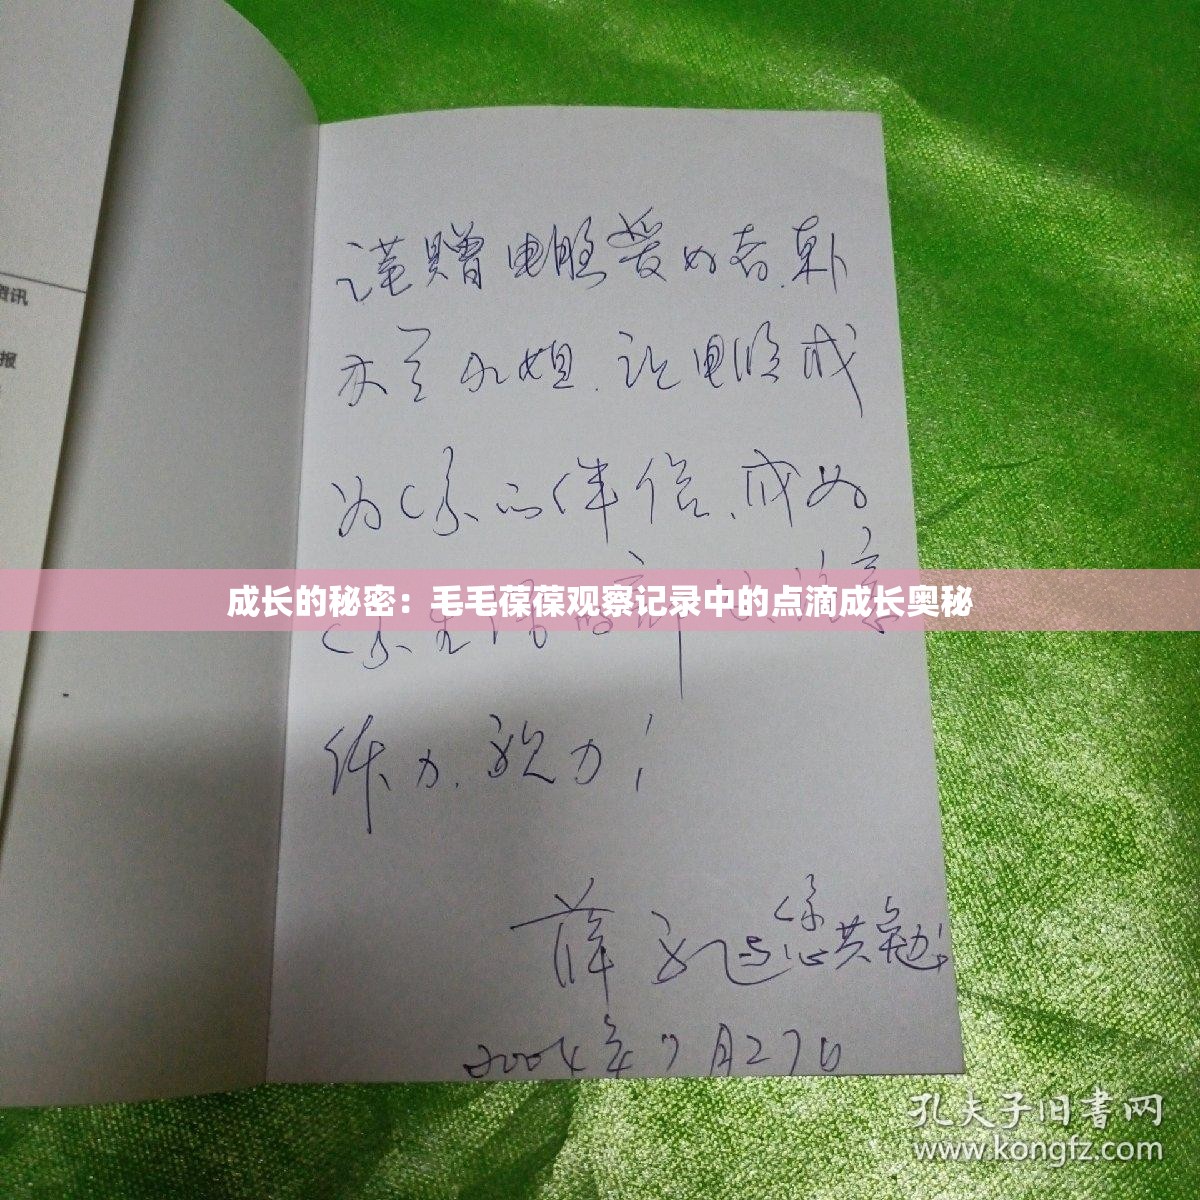 资讯
报
谨赠电脑爱好者.朴
木兰小姐.让电脑成
为你的伴侣、成为
成长的秘密：毛毛葆葆观察记录中的点滴成长奥秘
你生活
作力、魅力！
薛 与您共勉！
2004年7月27日
孔夫子旧书网
www.kongfz.com